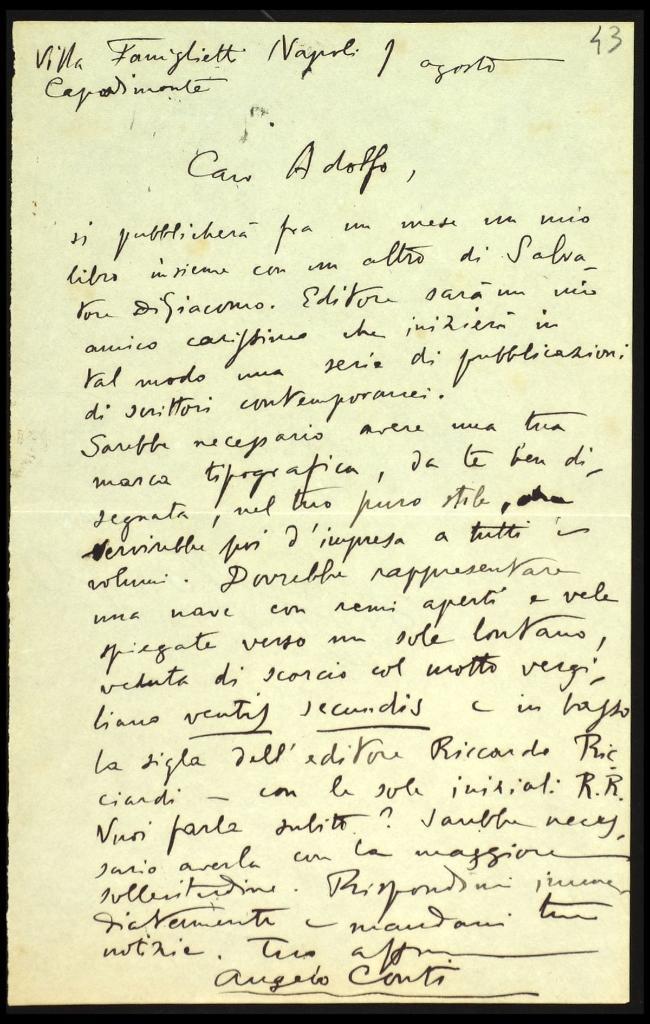 43
Villa Famiglietti (Napoli) agosto
Capodimonte
Caro Adolfo,
si pubblicherà fra un mese un mio
libro insieme con un altro di Salva-
tore DiGiacomo. Editore sarà un mio
amico carissimo che inizierà in
tal modo una serie di pubblicazioni
di scrittori contemporanei.
Sarebbe necessario avere una tua
marca tipografica, da te ben di-
segnata, nel tuo puro stile, che
servirebbe poi d'impresa a tutti i
volumi. Dovrebbe rappresentare
una nave con remi aperti e vele
spiegate verso un sole lontano,
veduta di scorcio col motto vergi-
liano ventis secundis e in basso
la sigla dell'editore Riccardo Ric-
ciardi – con le sole iniziali R.R.
Vuoi farla subito? Sarebbe neces-
sario averla con la maggiore
sollecitudine. Rispondimi imme-
diatamente e mandami tue
notizie. Tuo affmo
Angelo Conti